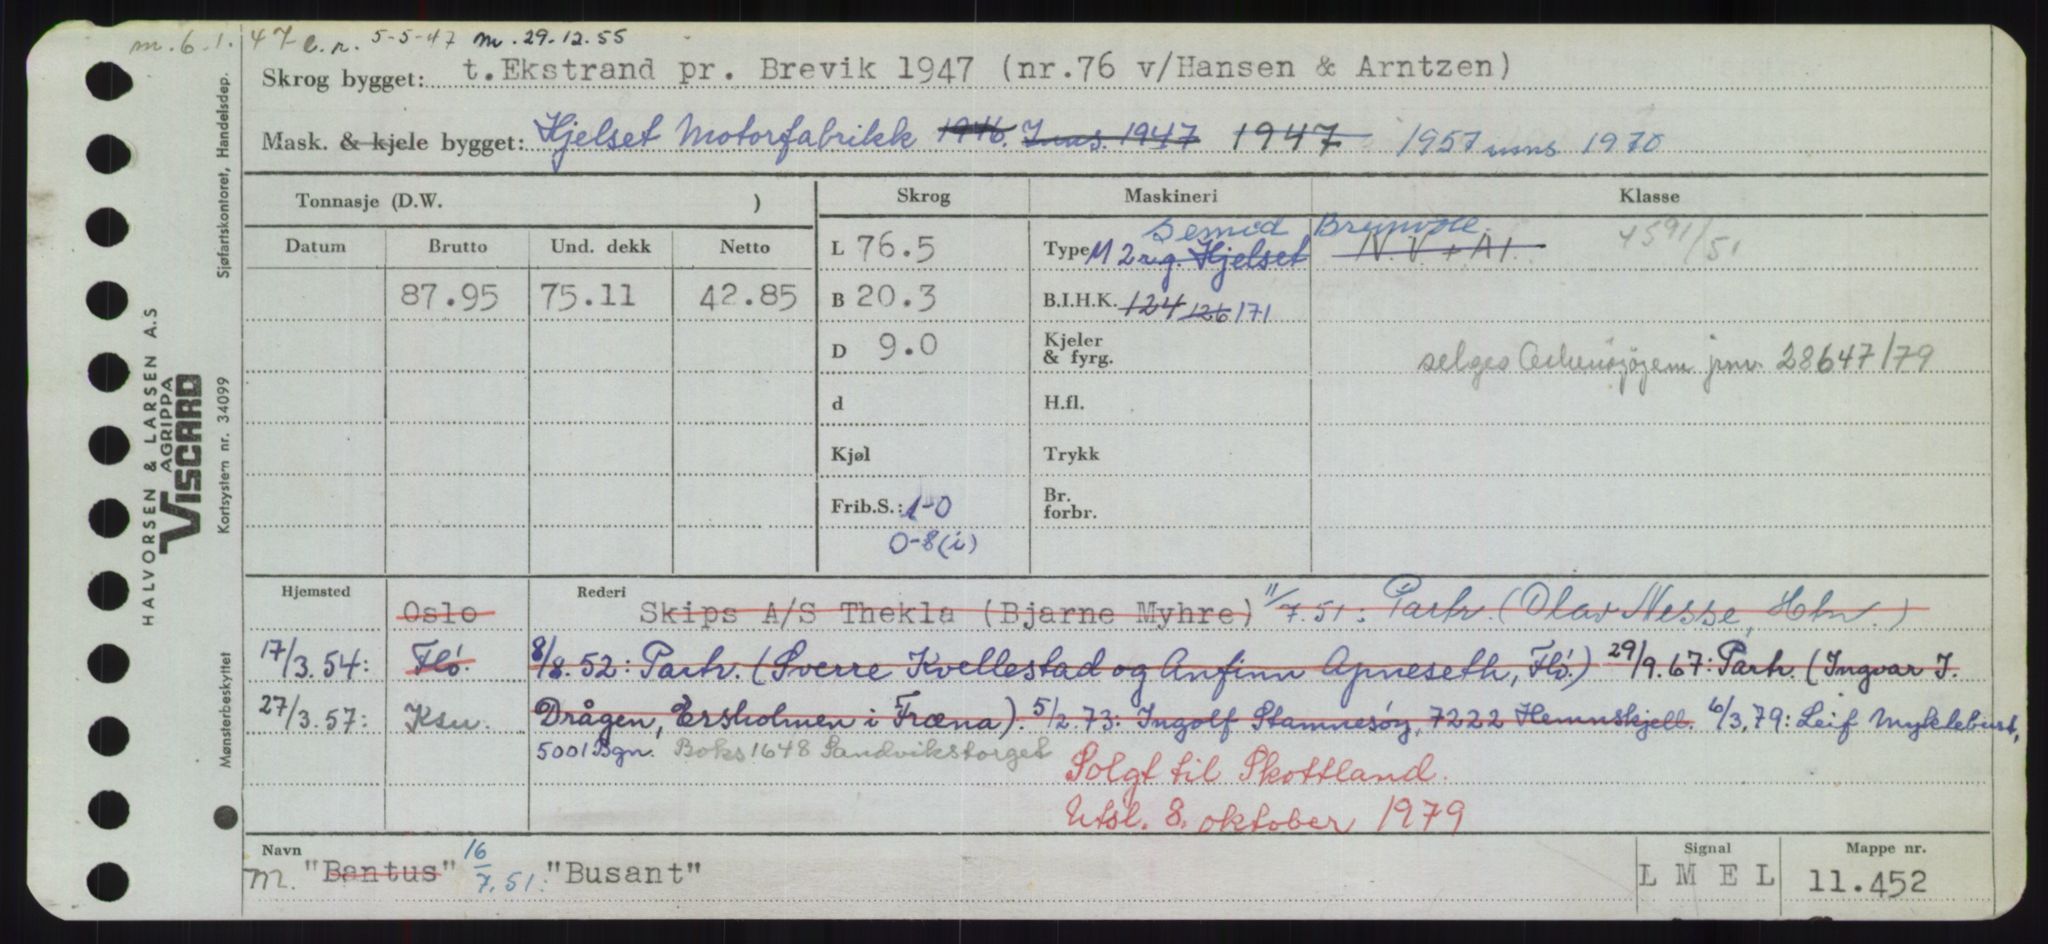 m. 6.1.47 e.r. 5-5-47 m. 29.12.55
Skrog bygget: t.Ekstrand pr. Brevik 1947 (nr.76 v/Hansen & Arntzen)
Mask. & kjele bygget: Hjelset Motorfabrikk 1946. Inns. 1947 1947 1957 inns 1970
Tonnasje (D.W. )
Skrog
Maskineri
Klasse
Datum Brutto Und. dekk Netto
87.95 75.11 42.85
L 76.5
B 20.3
D 9.0
d
Kjøl
Frib.S.: 1-0
0-8(i)
semid Brunvoll
Type M 2 sg. Hjelset
B.I.H.K. 124 126 171
Kjeler
& fyrg.
H.fl.
Trykk
Br.
forbr.
N.V. + A1.
4591/51
selges jnr. 28647/79
Hjemsted
Oslo
17/3.54: Flø.
27/3.57: Ksu.
Rederi
Skips A/S Thekla (Bjarne Myhre) 11/7.51: Partr. (Olav Nesse, Htn.)
8/8.52: Partr. (Sverre Kvellestad og Anfinn Apneseth, Flø.) 29/9.67: Partr. (Ingvar J.
Drågen, Ersholmen i Fræna). 5/2.73: Ingolf Stamnesøy, 7222 Hemnskjell. 6/3.79: Leif Myklebust,
5001 Bgn. Boks 1648 Sandvikstorget
Solgt til Skottland.
Utsl. 8. oktober 1979
Navn
m. "Bantus" 16/7.51: "Busant"
Signal
L M E L
Mappe nr.
11.452
HALVORSEN & LARSEN A.S
AGRIPPA
VISCARD
Sjøfartskontoret, Handelsdep.
Kortsystem nr. 34099
Mønsterbeskyttet